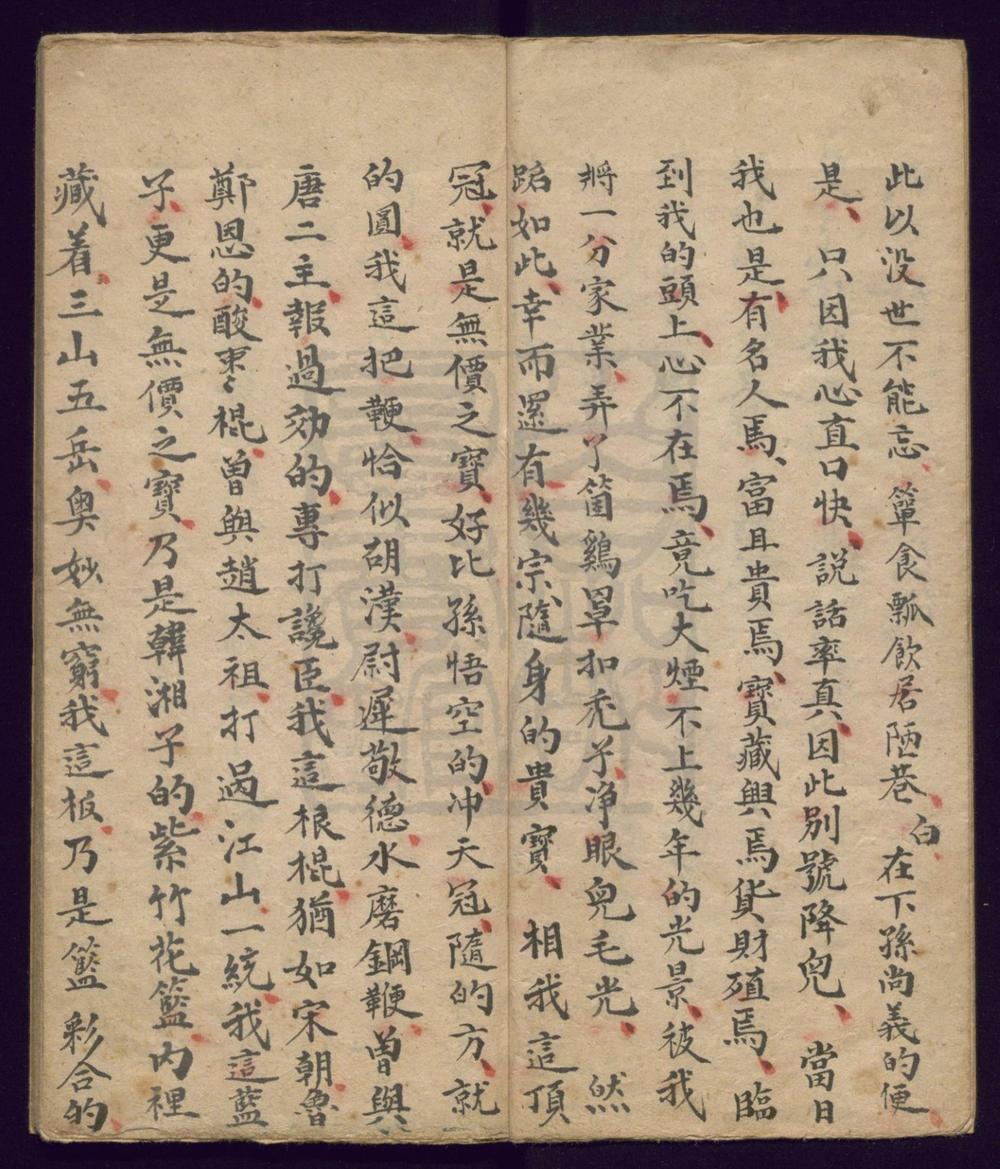 此以没世不能忘、簞食瓢飲居陋巷、白在下孫尚義的便
是、只因我心直口快、説話率真、因此別號降皃、當日
我也是、有名人焉、富且貴焉、寶藏與焉、貨財殖焉、臨
到我的頭上、心不在焉、竟吃大煙、不上幾年的光景、被我
將一分家業、弄了箇鷄罩扣禿子、净眼皃毛光、然
跕如此、幸而還有幾宗、隨身的貴寶、相我這頂
冠、就是無價之寶、好比孫悟空的、冲天冠、隨的方、就
的圓、我這把鞭、恰似胡漢、尉遲敬德、水磨鋼鞭、曽與
唐二主、報過効的、專打讒臣、我這根棍、猶如宋朝、魯
鄭恩的、酸枣〻棍、曽與趙太祖、打過江山一統、我這藍
子、更是無價之寶、乃是韓湘子的、紫竹花籃、内裡
藏着、三山五岳、奥妙無窮、我這板、乃是籃彩合的、